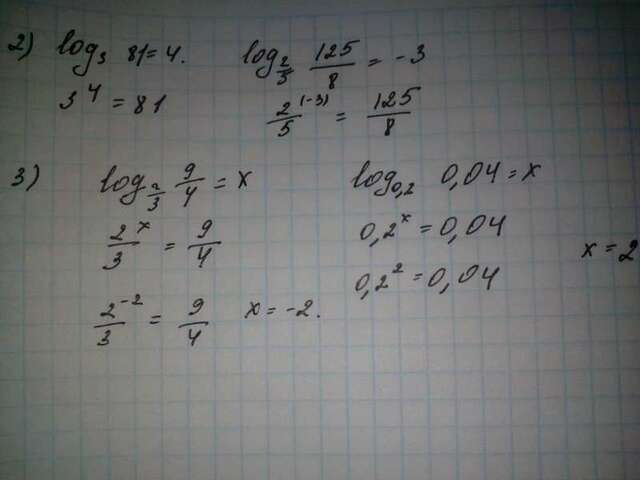 2) log₃ 81 = 4. log_(2/5) 125/8 = -3
3⁴ = 81 2/5^(-3) = 125/8
3) log_(2/3) 9/4 = x log_0,2 0,04 = x
2^x/3 = 9/4 0,2^x = 0,04
x = 2
2^-2/3 = 9/4 x = -2. 0,2² = 0,04